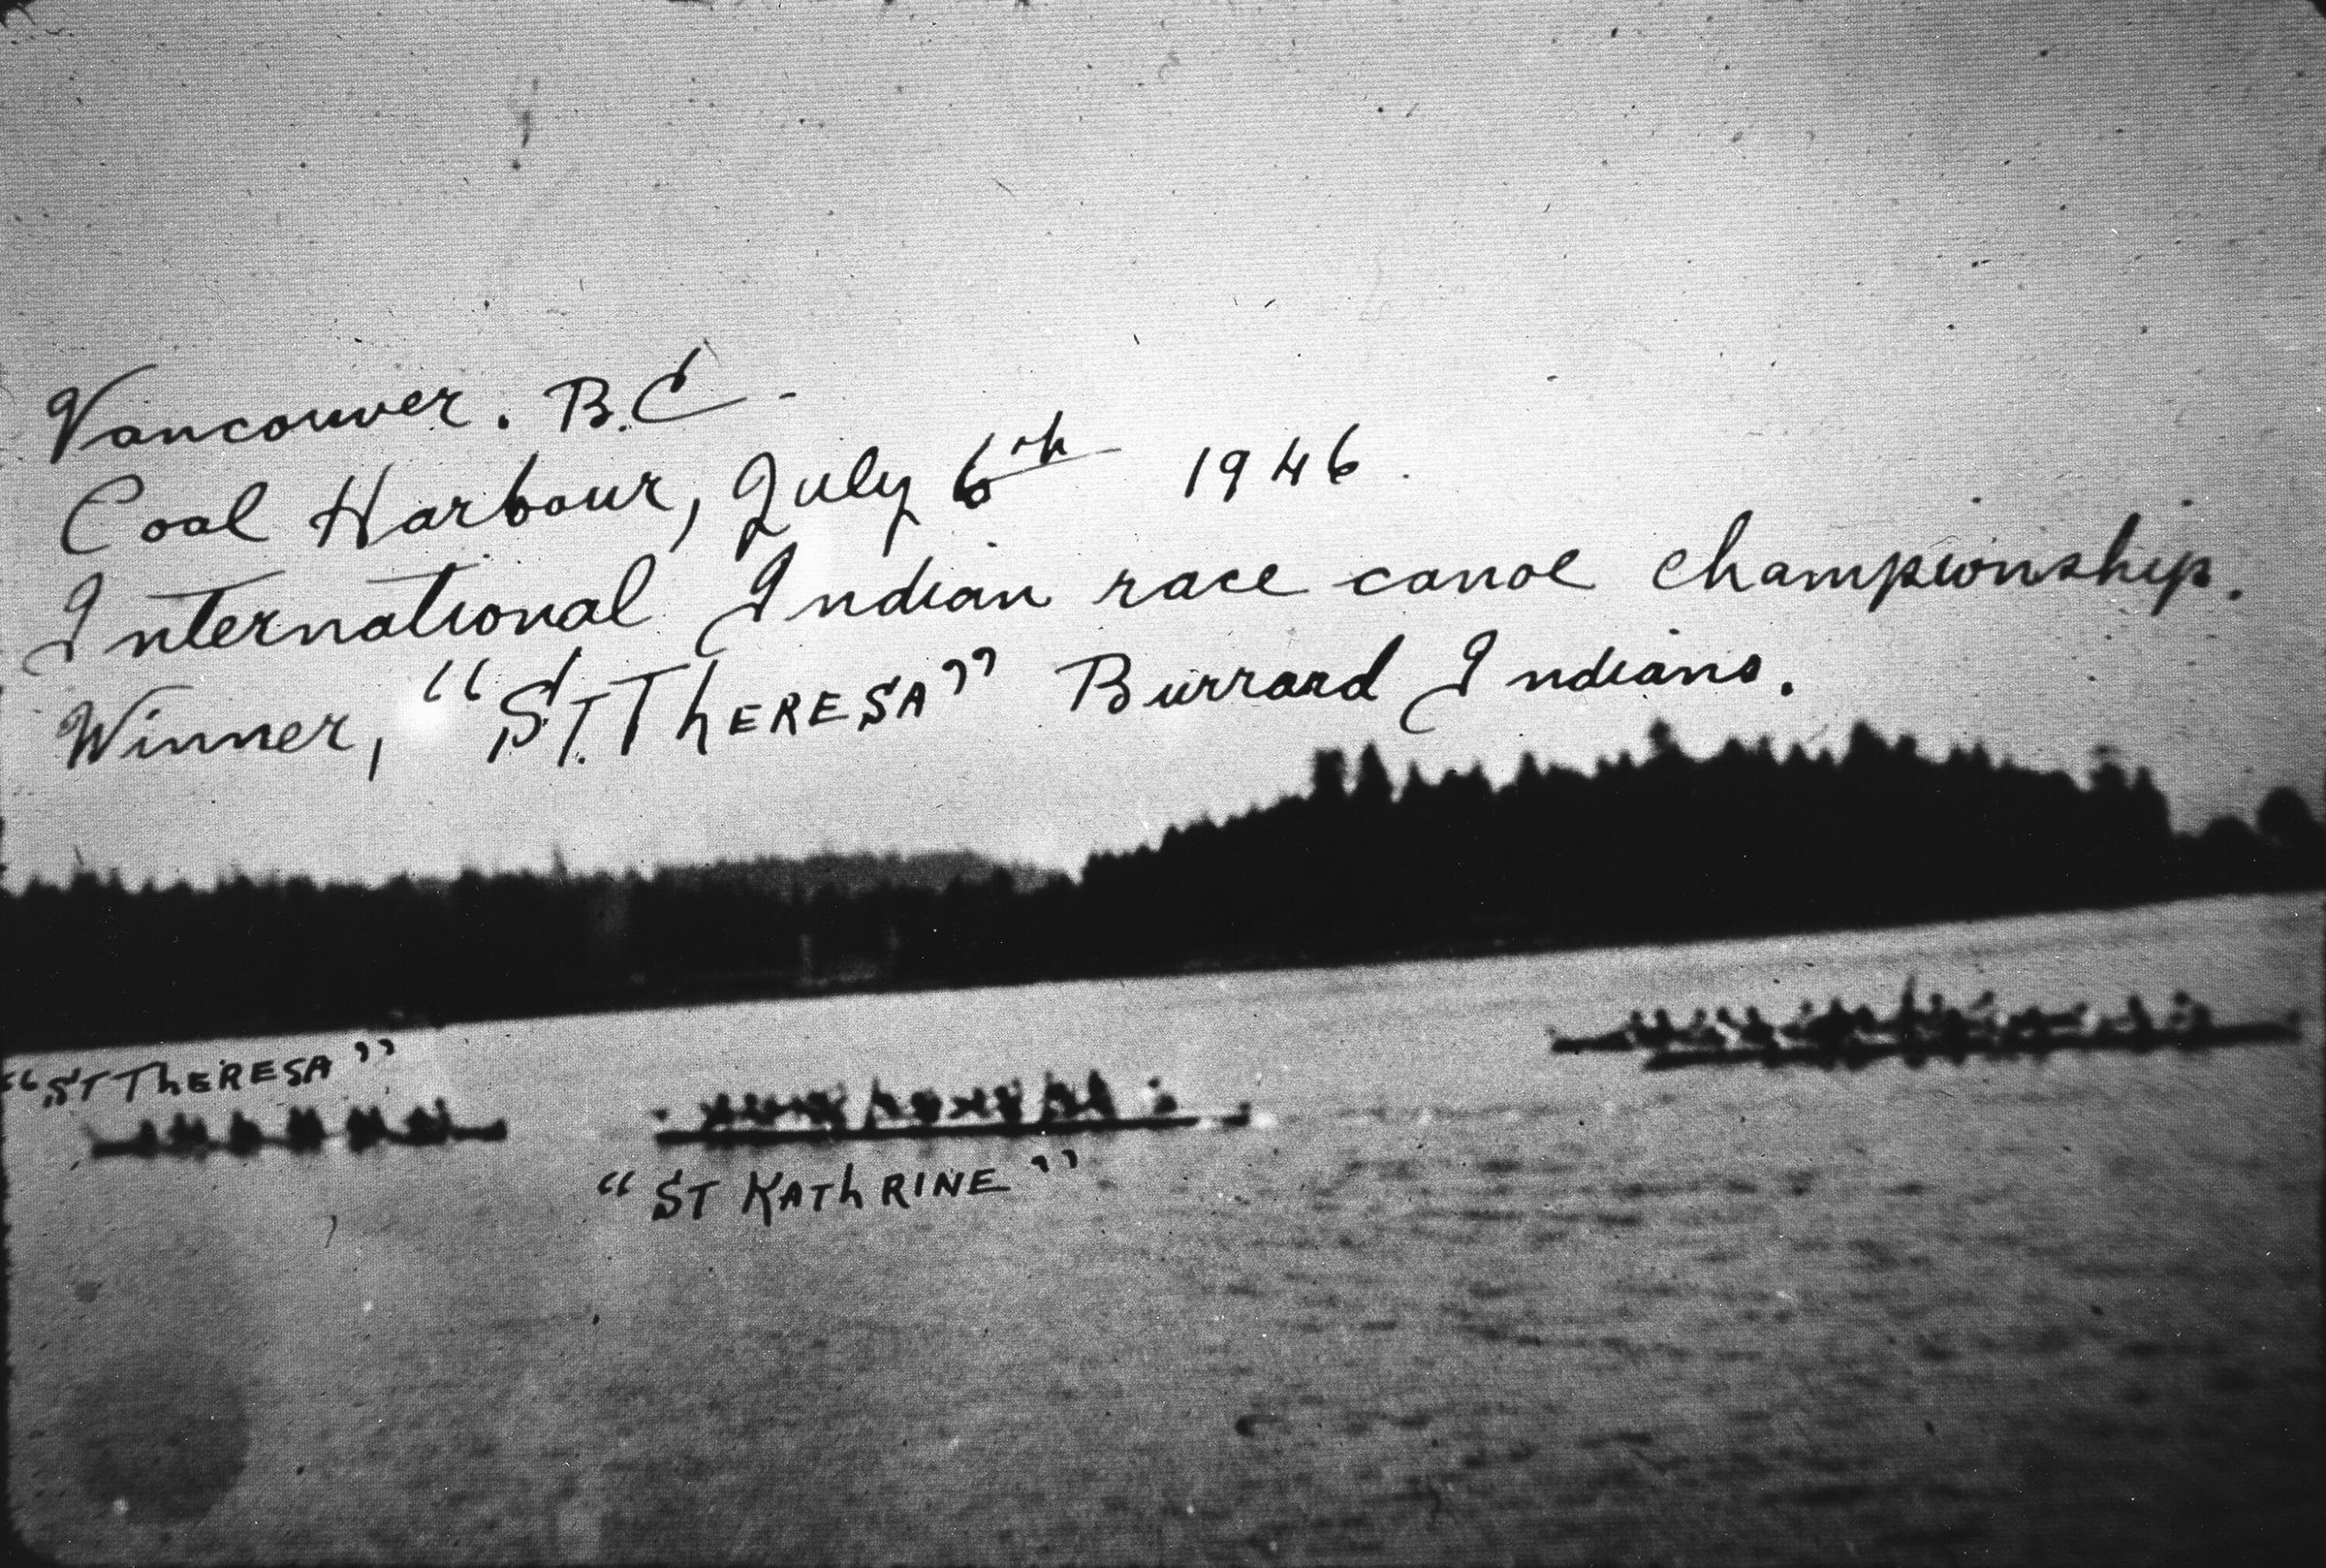 Vancouver. B.C.-
Coal Harbour, July 6th 1946.
International Indian race canoe championship.
Winner, "ST. ThERESA" Burrard Indians.
"ST ThERESA"
"ST KAThRINE"